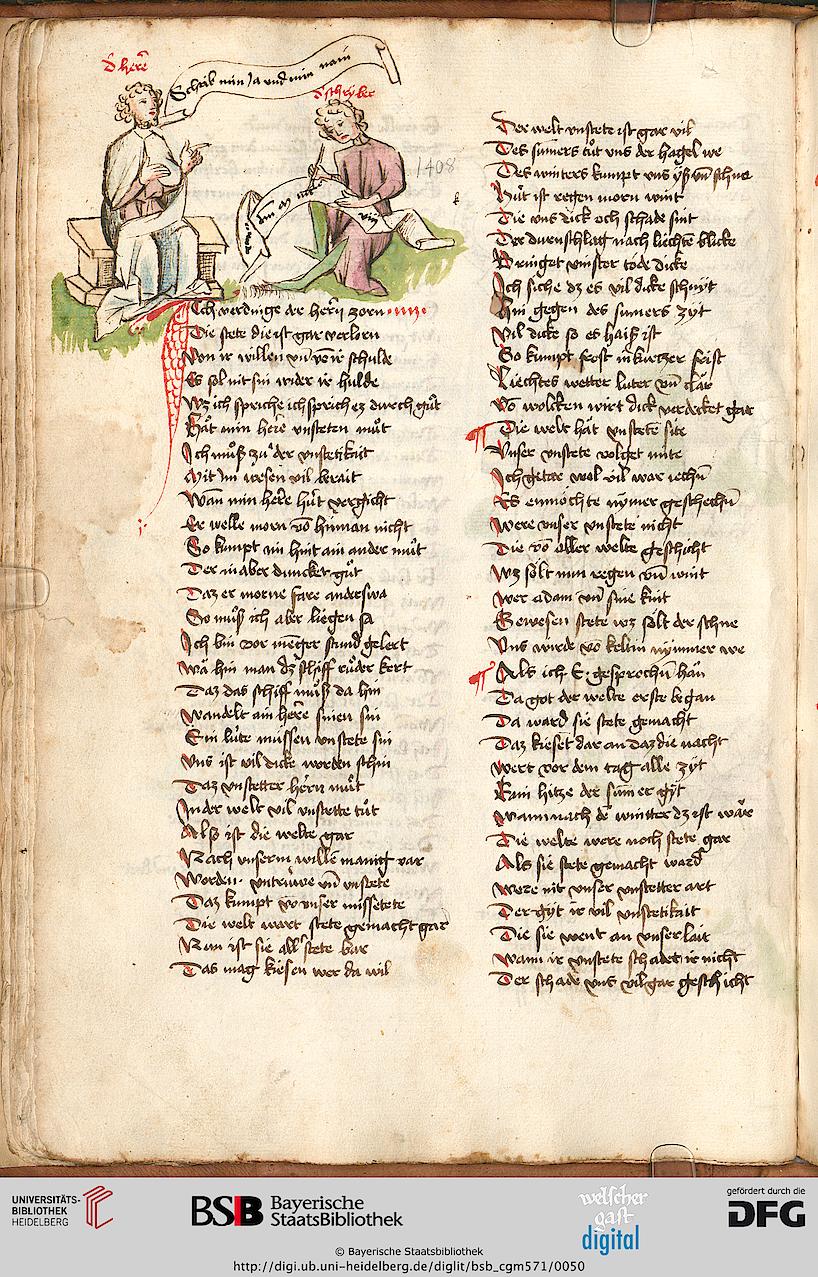 d' here
Schrib min Ja und min nain
d' schriber
1408
Ich verdinge der herñ zorn
Die stete die ist gar verlorn
Von ir willen vñ vō ir schulde
Es sol nit sin wider ir hulde
Wz ich spriche ich sprich ez durch gůt
Hat min here vnsteten můt
Ich můß zů der vnstetikait
Mit Im wesen vil berait
Wan min here hüt vergicht
Er welle morn vō hinnan nicht
So kumpt im hint ain ander můt
Der in aber duncket gůt
Daz er morne fare anderswa
So můß ich aber liegen sa
Ich bin vor menger stund gelert
Wa hin man dz schiff růder kert
Daz das schiff můß da hin
Wandelt ain here sinen sin
Sin lüte müssen vnstete sin
Vns ist vil dicke worden schin
Daz vnstetter herñ můt
In der welt vil vnstette tůt
Alß ist die welte gar
Nach vnserm wille manig var
Worden vntrüwe vñ vnstete
Daz kumpt vō vnser missetete
Die welt wart stete gemacht gar
Nun ist sie all stete bar
Das mag kiesen wer da wil
Der welt vnstete ist gar vil
Des sumers tůt vns der hagel we
Des winters kumpt vns yß vñ schne
Hüt ist regen morn wint
Die vns dick och schade sint
Der durnschlag nach liechte blicke
Bringet vinster tode dicke
Ich siche dz es vil dicke schnyt
Hin gegen des sumers zyt
Vil dicke so es haiß ist
So kumpt frost in kurtzer frist
Liechtes wetter luter vñ clar
Vō wolcken wirt dick verdecket gar
Die welt hat vnstete site
Vnser vnstete volget mite
Ich getar wol vil war iechñ
Es enmöchte nymer geschechñ
Were vnser vnstete nicht
Die vō aller welte geschicht
Wz sölt nun regen vñ wint
Wer adam vñ sine kint
Gewesen stete wz sölt der schne
Vns würde vō keltin nymmer we
Als ich E gesprochñ han
Da got der welte erste began
Da ward sie stete gemacht
Daz kieset dar an daz die nacht
Wert vor dem tag alle zyt
Kain hitze der sumer gyt
Wann nach de wintter dz ist war
Die welte were noch stete gar
Als sie stete gemacht ward
Were nit vnser vnstetter art
Der gyt ir vil vnstetikait
Die sie went an vnser lait
Wann ir vnstete schadet ir nicht
Der schade vns vil gar geschicht
UNIVERSITÄTS-
BIBLIOTHEK
HEIDELBERG
BSB Bayerische
StaatsBibliothek
welscher
gast
digital
gefördert durch die
DFG
© Bayerische Staatsbibliothek
http://digi.ub.uni-heidelberg.de/diglit/bsb_cgm571/0050